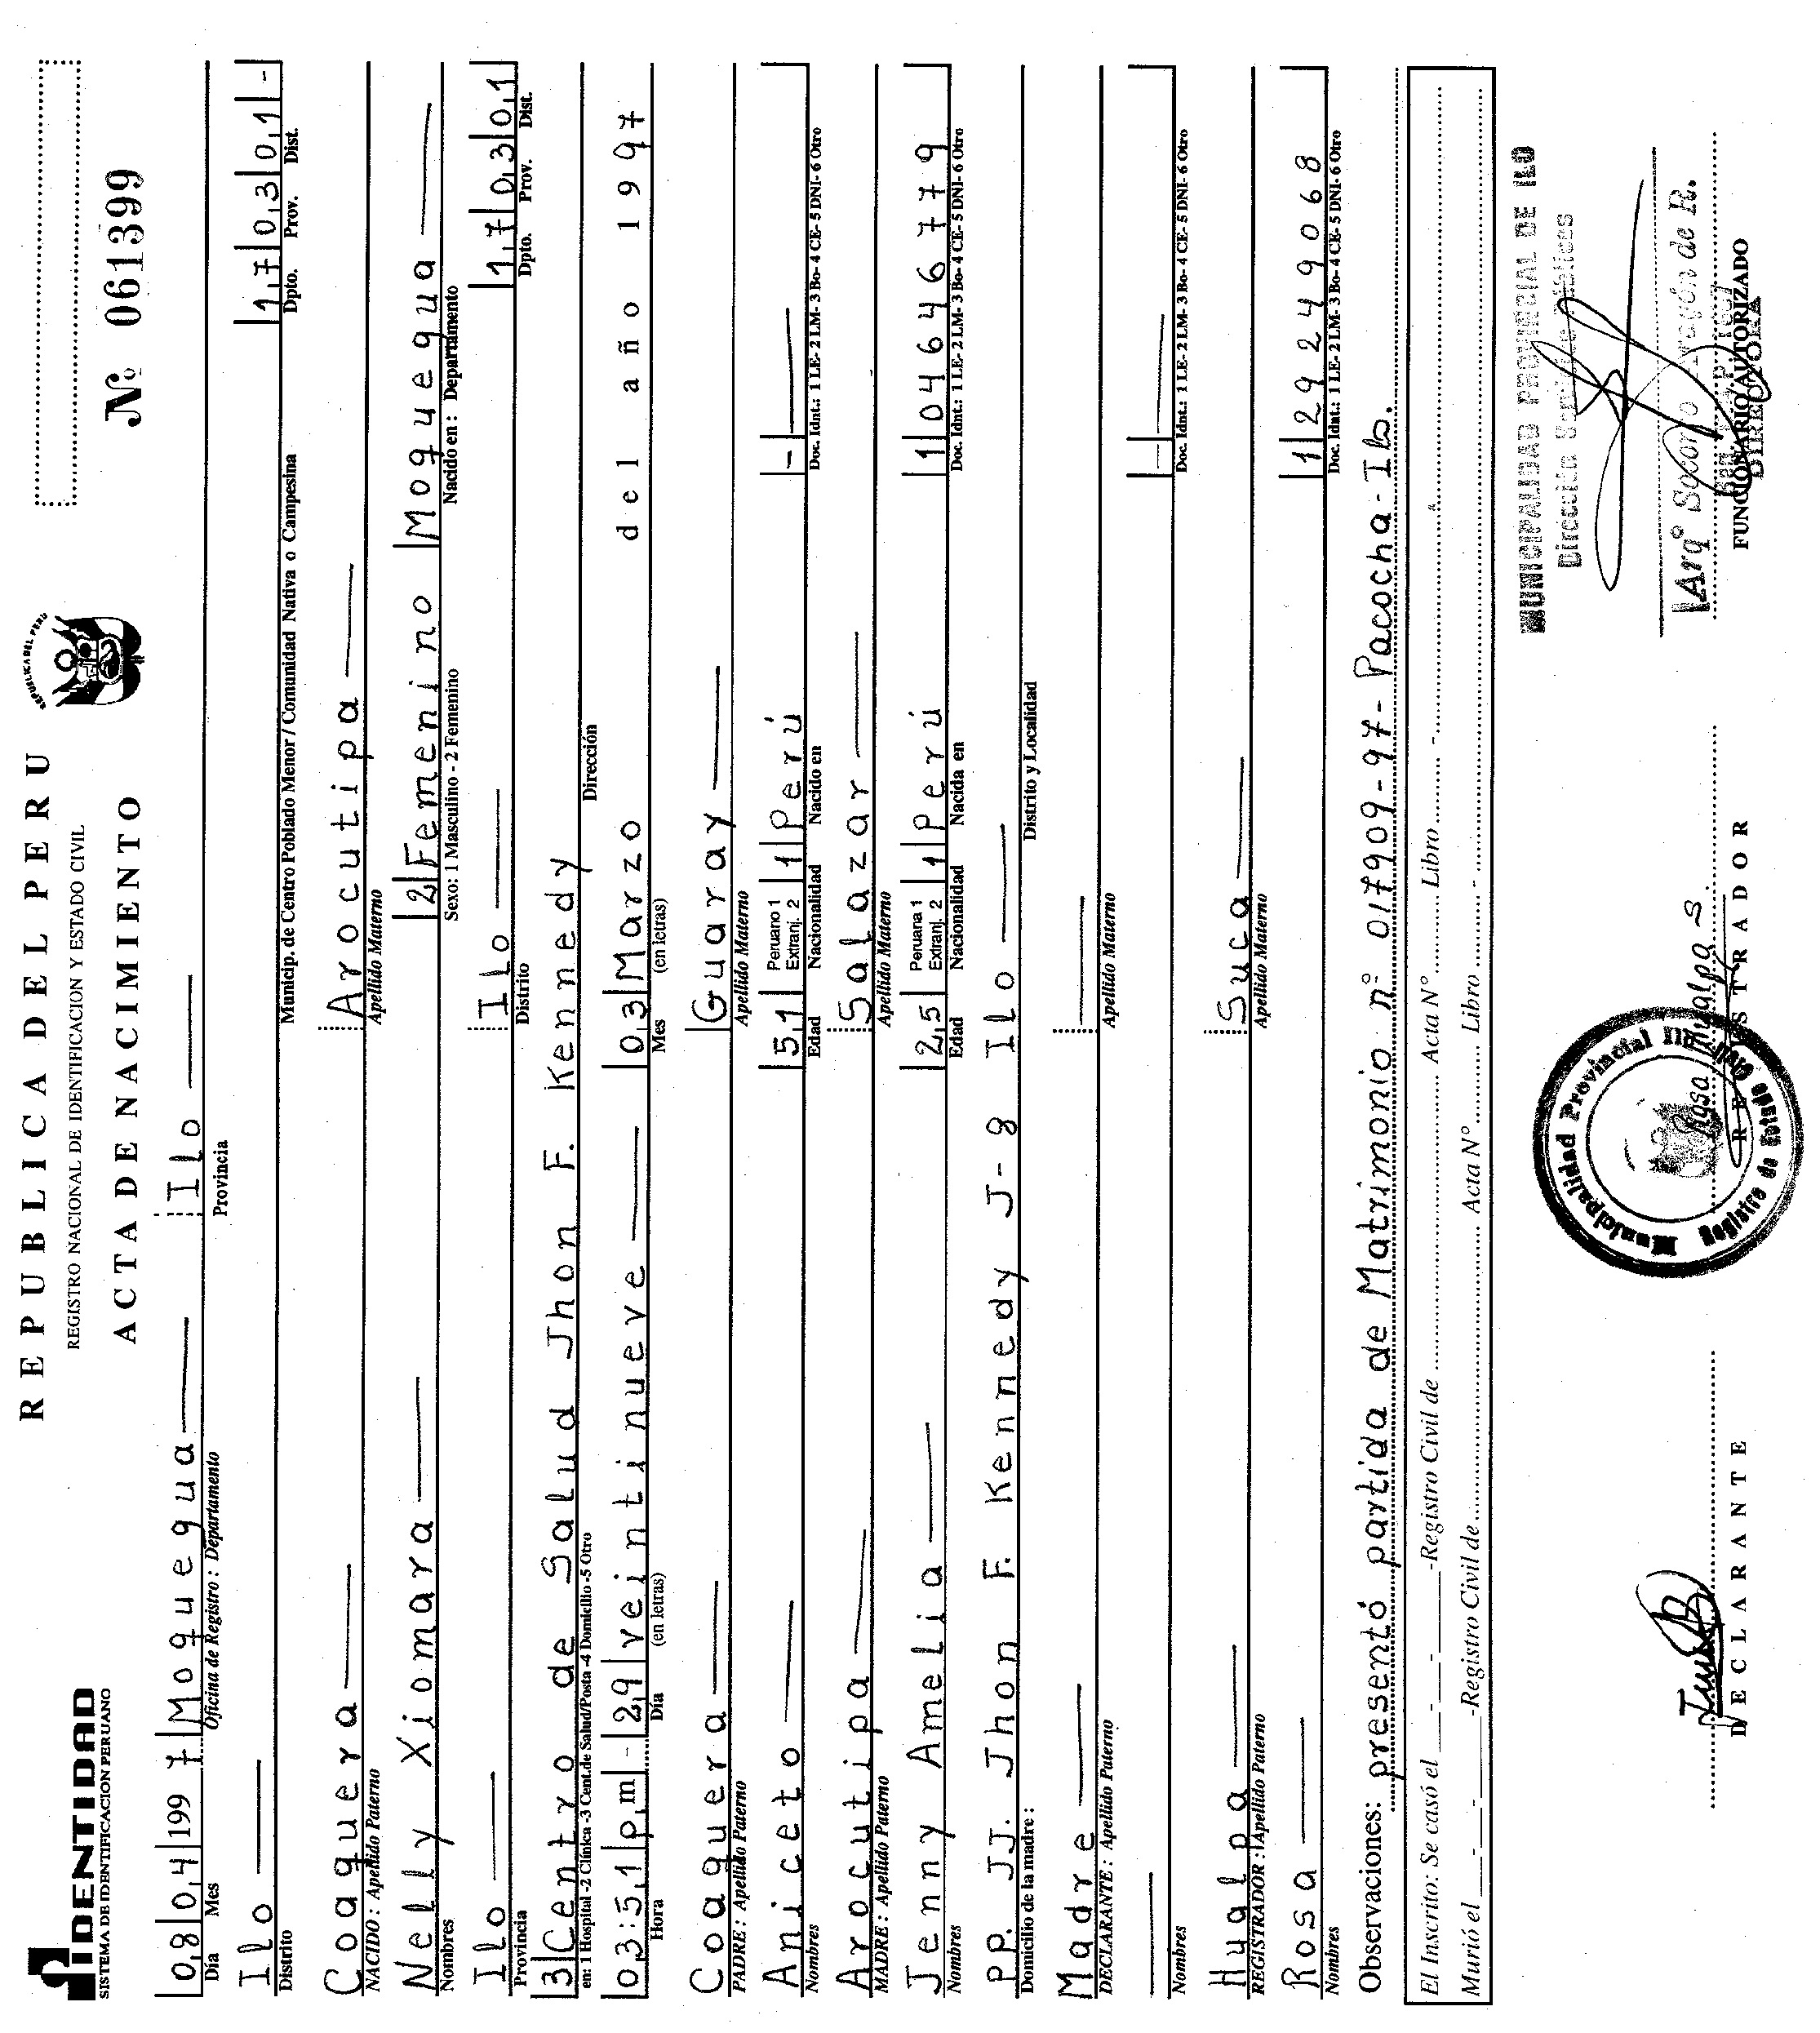 IDENTIDAD
SISTEMA DE IDENTIFICACION PERUANO
REPUBLICA DEL PERU
REGISTRO NACIONAL DE IDENTIFICACION Y ESTADO CIVIL
ACTA DE NACIMIENTO
REPUBLICA DEL PERU
Nº 061399
08 04 1997 Moquegua Ilo
Día Mes Oficina de Registro : Departamento Provincia
Ilo 17 03 01 -
Distrito Municip. de Centro Poblado Menor / Comunidad Nativa o Campesina Dpto. Prov. Dist.
Coaquera Arocutipa
NACIDO : Apellido Paterno Apellido Materno
Nelly Xiomara 2 Femenino Moquegua
Nombres Sexo: 1 Masculino - 2 Femenino Nacido en : Departamento
Ilo Ilo 17 03 01
Provincia Distrito Dpto. Prov. Dist.
3 Centro de Salud Jhon F. Kennedy
en: 1 Hospital -2 Clínica -3 Cent.de Salud/Posta -4 Domicilio -5 Otro Dirección
03:51 pm - 29 veintinueve 03 Marzo del año 1997
Hora Día (en letras) Mes (en letras)
Coaquera Guaray
PADRE : Apellido Paterno Apellido Materno
Aniceto 51 Peruano 1 Extranj. 2 1 Perú -
Nombres Edad Nacionalidad Nacido en Doc. Idnt.: 1 LE- 2 LM- 3 Bo- 4 CE- 5 DNI- 6 Otro
Arocutipa Salazar
MADRE : Apellido Paterno Apellido Materno
Jenny Amelia 25 Peruana 1 Extranj. 2 1 Perú 1 04646779
Nombres Edad Nacionalidad Nacida en Doc. Idnt.: 1 LE- 2 LM- 3 Bo- 4 CE- 5 DNI- 6 Otro
PP. JJ. Jhon F. Kennedy J-8 Ilo
Domicilio de la madre : Distrito y Localidad
Madre
DECLARANTE : Apellido Paterno Apellido Materno
Nombres Doc. Idnt.: 1 LE- 2 LM- 3 Bo- 4 CE- 5 DNI- 6 Otro
Hualpa Suca
REGISTRADOR : Apellido Paterno Apellido Materno
Rosa 1 29249068
Nombres Doc. Idnt.: 1 LE- 2 LM- 3 Bo- 4 CE- 5 DNI- 6 Otro
Observaciones: presentó partida de Matrimonio nº 017909-97- Pacocha-Ilo.
El Inscrito: Se casó el - - -Registro Civil de Acta Nº Libro -
Murió el - - -Registro Civil de Acta Nº Libro -
MUNICIPALIDAD PROVINCIAL DE ILO
Dirección
Municipalidad Provincial Ilo
Registro de Estado Civil
Rosa Hualpa S.
Arqº Socorro Aragón de R.
DIRECTORA
DECLARANTE
REGISTRADOR
FUNCIONARIO AUTORIZADO